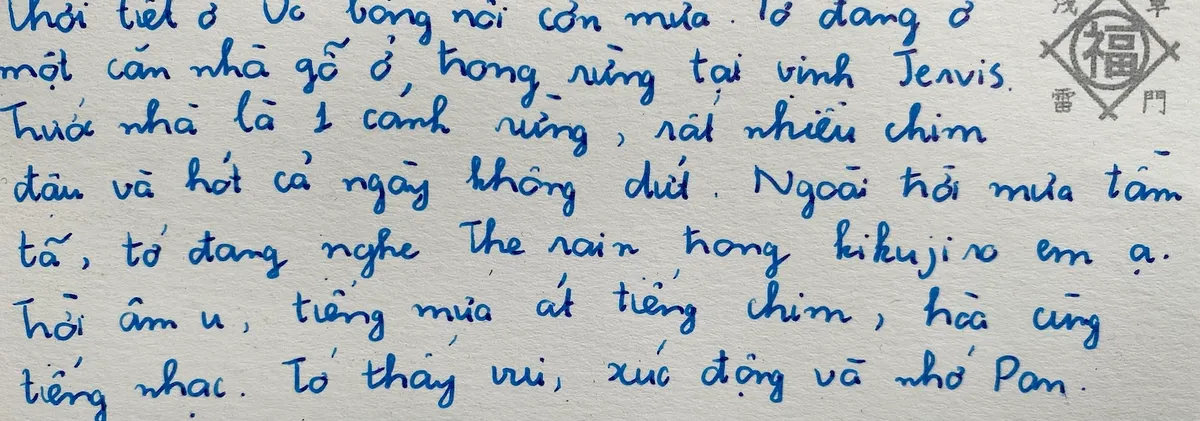 thời tiết ở Úc bỗng nổi cơn mưa. Tớ đang ở
một căn nhà gỗ ở trong rừng tại vịnh Jervis.
Trước nhà là 1 cánh rừng, rất nhiều chim
đậu và hót cả ngày không dứt. Ngoài trời mưa tầm
tã, tớ đang nghe The rain trong kikujiro em ạ.
Trời âm u, tiếng mưa át tiếng chim, hoà cùng
tiếng nhạc. Tớ thấy vui, xúc động và nhớ Pan.
浅 草
福
雷 門